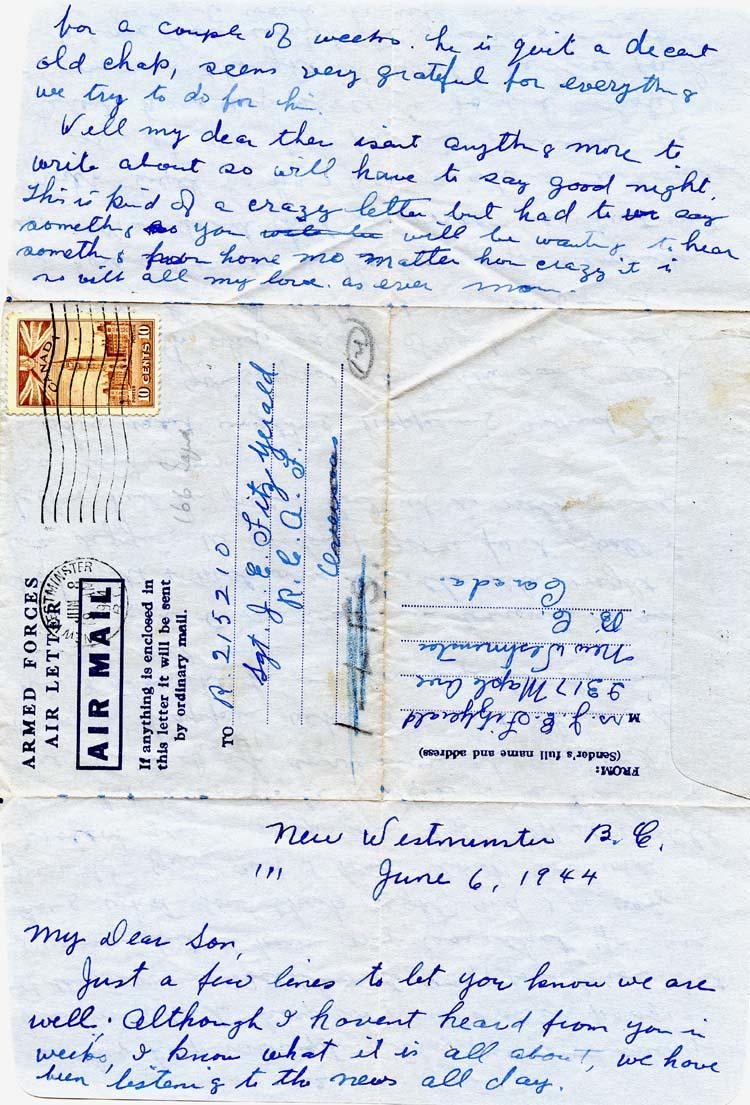 for a couple of weeks. he is quite a decent
old chap, seems very grateful for everything
we try to do for him.
Well my dear ther isent anything more to
write about so will have to say good night.
This is kind of a crazy letter but had to say
something so you will be wanting to hear
something from home no matter how crazy it is
so will all my love. as ever mom.
CANADA
10 CENTS 10
ARMED FORCES
AIR LETTER
AIR MAIL
If anything is enclosed in
this letter it will be sent
by ordinary mail.
TO R.215210
Sgt. J. E. Fitz Gerald
R. C. A. F.
Overseas
166 Sqd
FROM:
(Sender's full name and address)
Mrs. J. E. Fitzgerald
2317 Maple Ave
New Westminster
B. C.
Canada.
New Westminster B. C.
June 6, 1944
My Dear Son,
Just a few lines to let you know we are
well. Although I havent heard from you in
weeks, I know what it is all about, we have
been listening to the news all day.